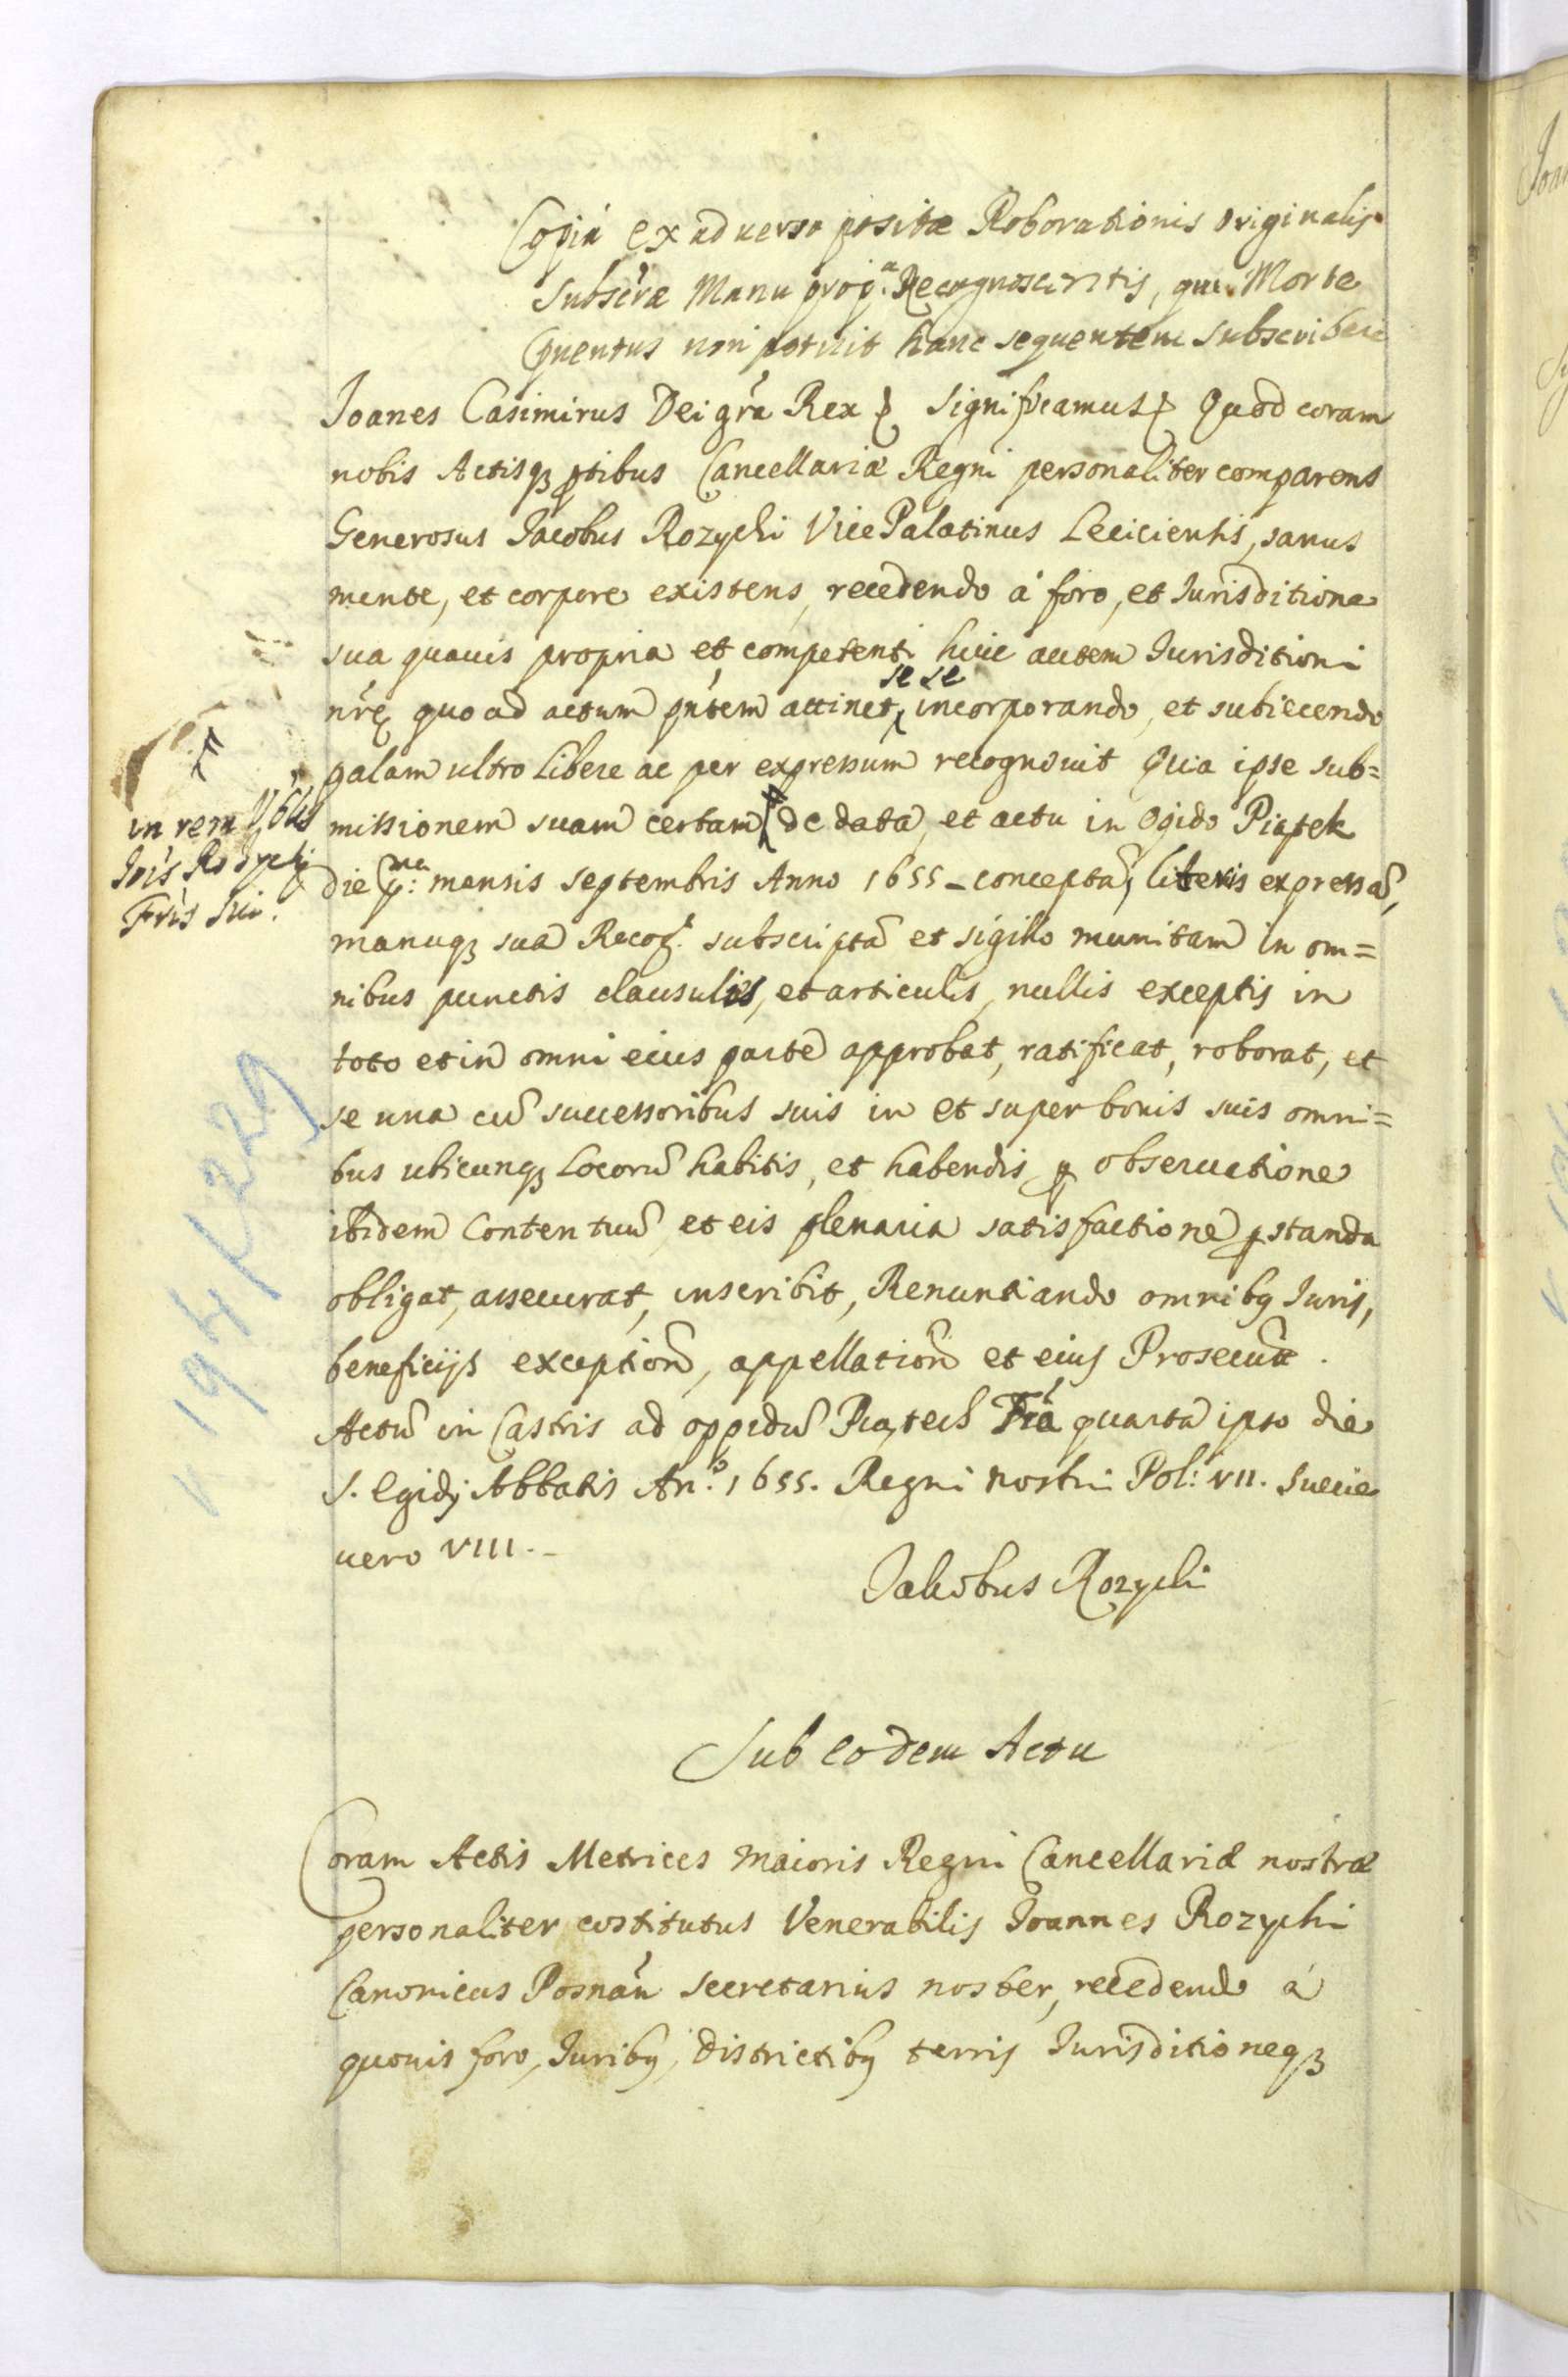 Copia ex adverso positæ Roborationis originalis
Subscræ Manu prop.ª Recognoscentis, qui Morte
pventus non potuit hanc sequentem subscribere
Joanes Casimirus Dei grã Rex Significamus Quod coram
nobis Actisq3 ptibus Cancellariæ Regni personaliter comparens
Generosus Jacobus Rozycki Vice Palatinus Lecicientis, sanus
mente, et corpore existens, recedendo à foro, et Jurisditione
sua quavis propria et competenti huic autem Jurisditioni
nrę quo ad actum pntem attinet, sese incorporando, et subiicendo
palam ultro libere ac per expressum recognovit Quia ipse sub=
missionem suam certam de data, et actu in Ogido Piątek
die p:ma mensis septembris Anno 1655 conceptã, literis expressã,
manuq3 sua Recog: subscriptã et sigillo munitam in om=
nibus punctis clausulis, et articulis, nullis exceptis in
toto et in omni eius parte approbat, ratificat, roborat, et
se una cũ successoribus suis in et super bonis suis omni=
bus ubicunq3 Locorũ habitis, et habendis p observatione
ibidem Contentuũ, et eis plenaria satisfactione pstanda
obligat, assecurat, inscribit, Renuntiando omnibq Juris,
beneficijs exceptionũ, appellationũ et eius Prosecuũt.
Actũ in Castris ad oppidũ Piątek Fiã quarta ipso die
S. Egidij Abbatis An.º 1655. Regni nostri Pol: VII. Sueciæ
vero VIII.
Jakobus Rozycki
in rem
Jois Rozycki
Fris sui.
V 194/229
Sub eodem Actu
Coram Actis Metrices Maioris Regni Cancellariæ nostræ
personaliter costitutus Venerabilis Joannes Rozycki
Canonicus Posnan secretarius noster, recedendo à
quovis foro, Juribq, districtibq terris Jurisditioneq3